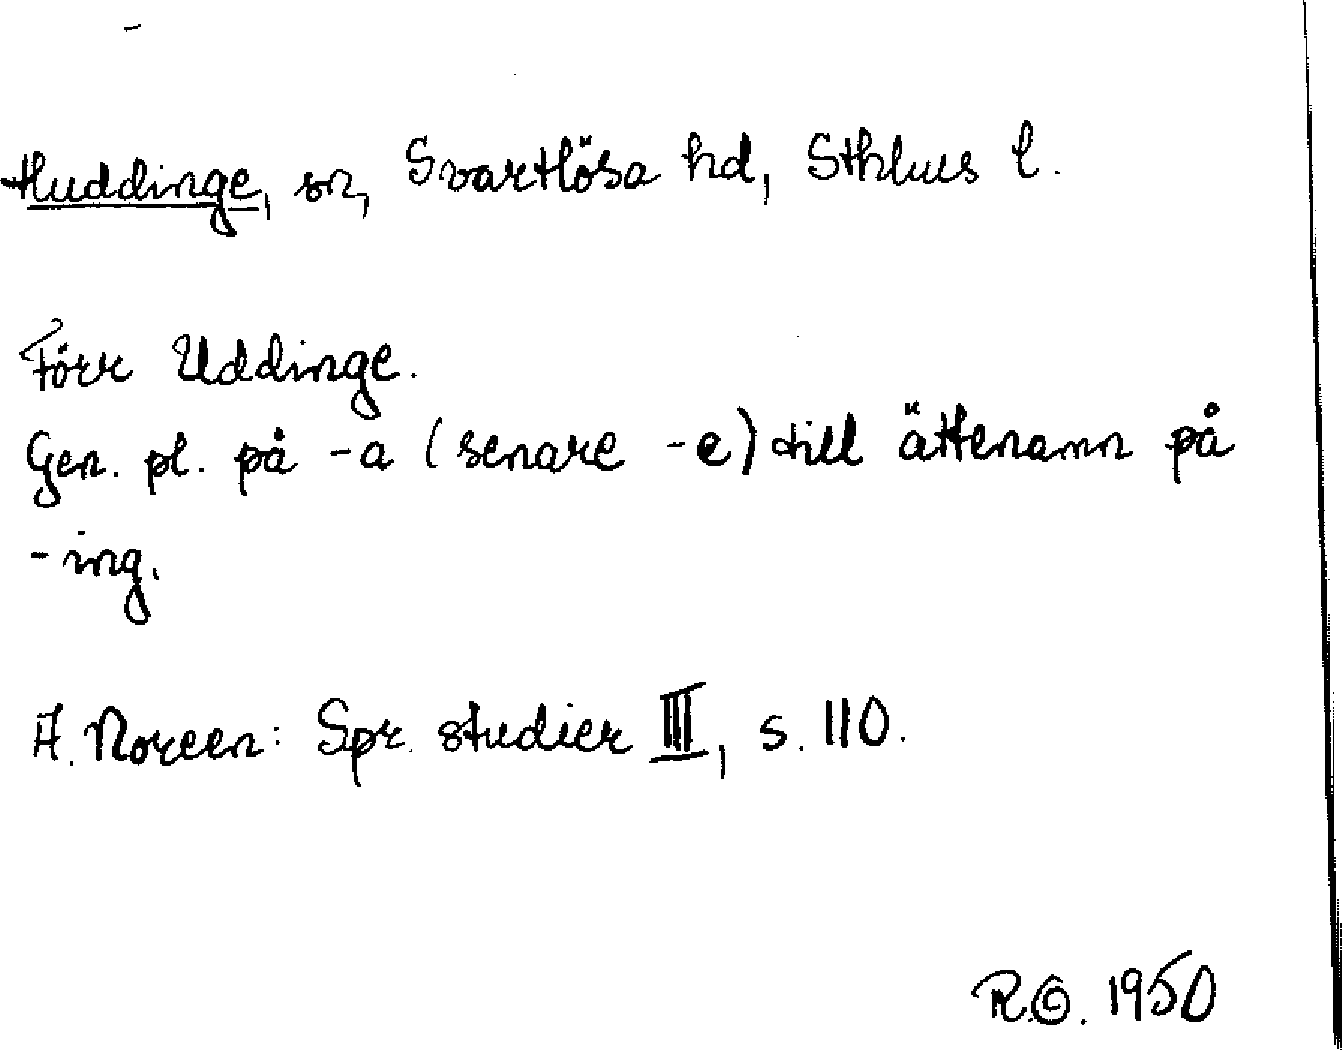 Huddinge, sn, Svartlösa hd, Sthlms l.
Förr Uddinge.
Gen. pl. på -a (senare -e) till ättenamn på
-ing.
A. Noreen: Spr. studier III, s. 110.
R.G. 1950